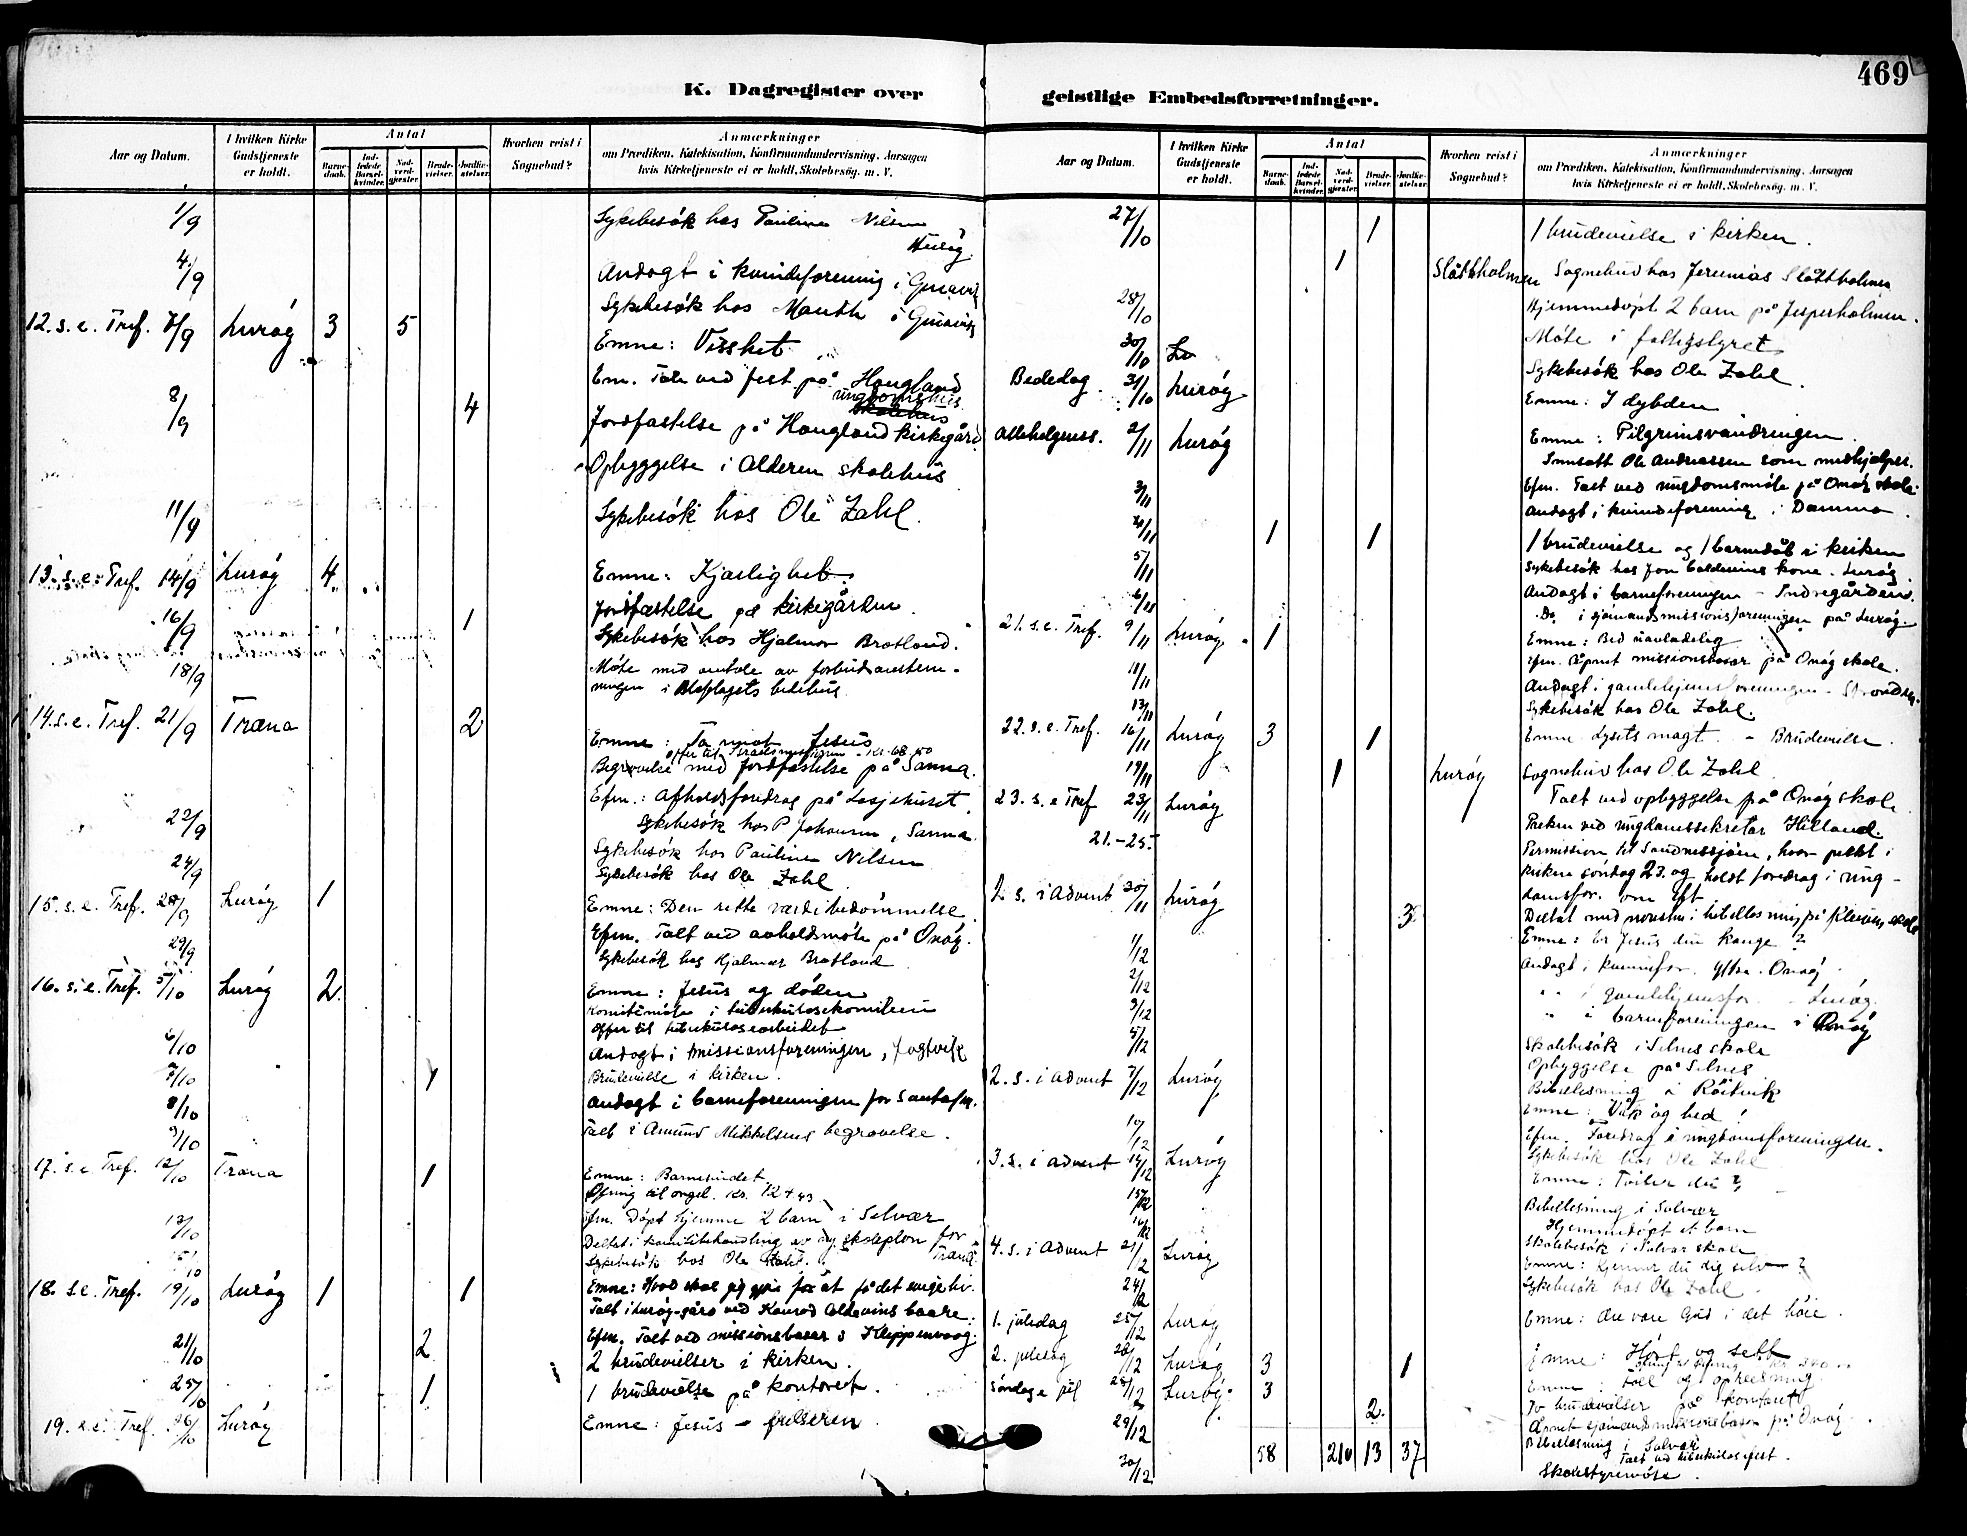 469
K. Dagregister over
Aar og Datum.
I hvilken Kirke Gudstjeneste er holdt.
Antal
Barne-daab.
Ind-ledede Barsel-kvinder.
Nad-verd-gjester.
Brude-vielser.
Jordfæ-stelser.
Hvorhen reist i Sognebud?
Anmærkninger
om Prædiken, Katekisation, Konfirmandundervisning, Aarsagen
hvis Kirketjeneste ei er holdt, Skolebesøg, m. V.
1/9 Sykebesök hos Pauline Nilsen
4/9 Andagt i kvindeforening i
Sykebesök hos i
12. s. e. Tref. 7/9 Luröy 3 5 Emne: Visshet
Em. Tale ved fest på Haugland
ungdomshus
skolehus
8/9 4 Jordfæstelse på Haugland kirkegård
Opbyggelse i Alderen skolehus
11/9 Sykebesök hos Ole Zahl.
13. s. e. Tref. 14/9 Luröy 4 Emne: Kjærlighet.
16/9 1 Jordfæstelse på kirkegården.
Sykebesök hos Hjalmar Bratland.
18/9 Möte med omtale av forbudsavstem-
ningen i bedehus
14. s. e. Tref. 21/9 Træna 2 Emne: Ta mot Jesus
Offer til Israelsmissionen - Kr. 68.50
Begravelse med jordfæstelse på Sanna.
Efm.: Afholdsforedrag på Losjehuset
22/9 Sykebesök hos P. Johansen, Sanna.
Sykebesök hos Pauline Nilsen
24/9 Sykebesök hos Ole Zahl
15. s. e. Tref. 28/9 Luröy 1 Emne: Den rette værdibedömmelse
Efm. Talt ved avholdsmöte på Onöy.
29/9 Sykebesök hos Hjalmar Bratland
16. s. e. Tref. 5/10 Luröy 2 Emne: Jesus og döden
Komitemöte i tuberkulosekomiteen
Offer til tuberkulosearbeidet
6/10 Andagt i missionsforeningen,
7/10 1 Brudevielse i kirken.
8/10 Andagt i barneforeningen for
9/10 Talt i Amund Mikkelsens begravelse.
17. s. e. Tref. 12/10 Træna 1 Emne: Barnesindet
Ofring til orgel. Kr. 124.43
Efm. Döpt hjemme 2 barn i Selvær
13/10 Deltat i komitebehandling av ny skoleplan for Træna
15/10 Sykebesök hos Ole Zahl.
18. s. e. Tref. 19/10 Luröy 1 1 Emne: Hvad skal jeg gjöre for at få det evige liv.
Talt i Luröy-gård ved Konrad Coldevins baare.
Efm. Talt ved missionsbasar i Kleppenvaag.
21/10 2 2 brudevielser i kirken.
25/10 1 1 brudevielse på kontoret.
19. s. e. Tref. 26/10 Luröy Emne: Jesus - frelseren
geistlige Embedsforretninger.
Aar og Datum.
I hvilken Kirke Gudstjeneste er holdt.
Antal
Barne-daab.
Ind-ledede Barsel-kvinder.
Nad-verd-gjester.
Brude-vielser.
Jordfæ-stelser.
Hvorhen reist i Sognebud?
Anmærkninger
om Prædiken, Katekisation, Konfirmandundervisning, Aarsagen
hvis Kirketjeneste ei er holdt, Skolebesøg, m. V.
27/10 1 1 brudevielse i kirken.
1 Slåttholmen Sognebud hos Jeremias Slåttholmen
28/10 Hjemmedöpt 2 barn på Jesperholmen.
Möte i
30/10 Lu Sykebesök hos Ole Zahl.
Bededag 31/10 Luröy Emne: I dybden
Allehelgenss. 2/11 Luröy Emne: Pilgrimsvandringen.
Innsatt Ole Andreassen som medhjelper.
Efm. Talt ved ungdomsmöte på Onöy skole.
3/11 Andagt i kvindeforening i Damma.
4/11 1 1 1 brudevielse og 1 barnedåb i kirken
5/11 Sykebesök hos Jon Coldevins kone. Luröy.
Andagt i barneforeningen - Indregården.
6/11 Do. i sjömandsmissionsforeningen på Luröy.
21. s. e. Tref. 9/11 Luröy 1 Emne: Bed uavladelig
Efm. Åpnet missionsbasar på Onöy skole.
11/11 Andagt i gamlehjemsforeningen - Stranden.
13/11 Sykebesök hos Ole Zahl.
22. s. e. Tref. 16/11 Luröy 3 1 Emne Lysets magt. - Brudevielse.
19/11 1 Luröy Sognebud hos Ole Zahl
Talt ved opbyggelse på Onöy skole
23. s. e. Tref 23/11 Luröy Preken ved ungdomssekretær Hilland.
21.-25. Permission til Sandnessjöen, hvor prekt i
kirken söndag 23. og holdt foredrag i ung-
domsfor. om
1. s. i Advent 30/11 Luröy 3 Deltat med i bibellesning på skole
Emne: Er Jesus din konge?
1/12 Andagt i kvinnefor. Onöy
2/12 " " i gamlehjemsfor. - Luröy.
3/12 " i barneforeningen i Onöy
5/12 Skolebesök i Selnes skole
Opbyggelse på Selnes
Bibellesning i Råtvik
2. s. i Advent 7/12 Luröy Emne: Våk og bed!
Efm. Foredrag i ungdomsforeningen.
10/12 Sykebesök hos Ole Zahl
3. s. i Advent 14/12 Luröy Emne: Tviler du?
15/12 Bibellesning i Selvær
Hjemmedöpt et barn
16/12 Skolebesök i Selvær skole
4. s. i Advent 21/12 Luröy Emne: Kjenner du dig selv?
24/12 Sykebesök hos Ole Zahl.
1. juledag 25/12 Luröy Emne: Ære være Gud i det höie.
2. juledag 26/12 Luröy 3 1 Emne: Hört og sett
Söndag e. jul 28/12 Luröy 3 Emne: Fall og opreisning
2 To brudevielser på kontoret
29/12 Åpnet sjömandsmissionsbasar på Onöy.
30/12 Bibellesning i Selvær
Talt ved tuberkulosefest.
Skolestyremöte.
58 210 13 37